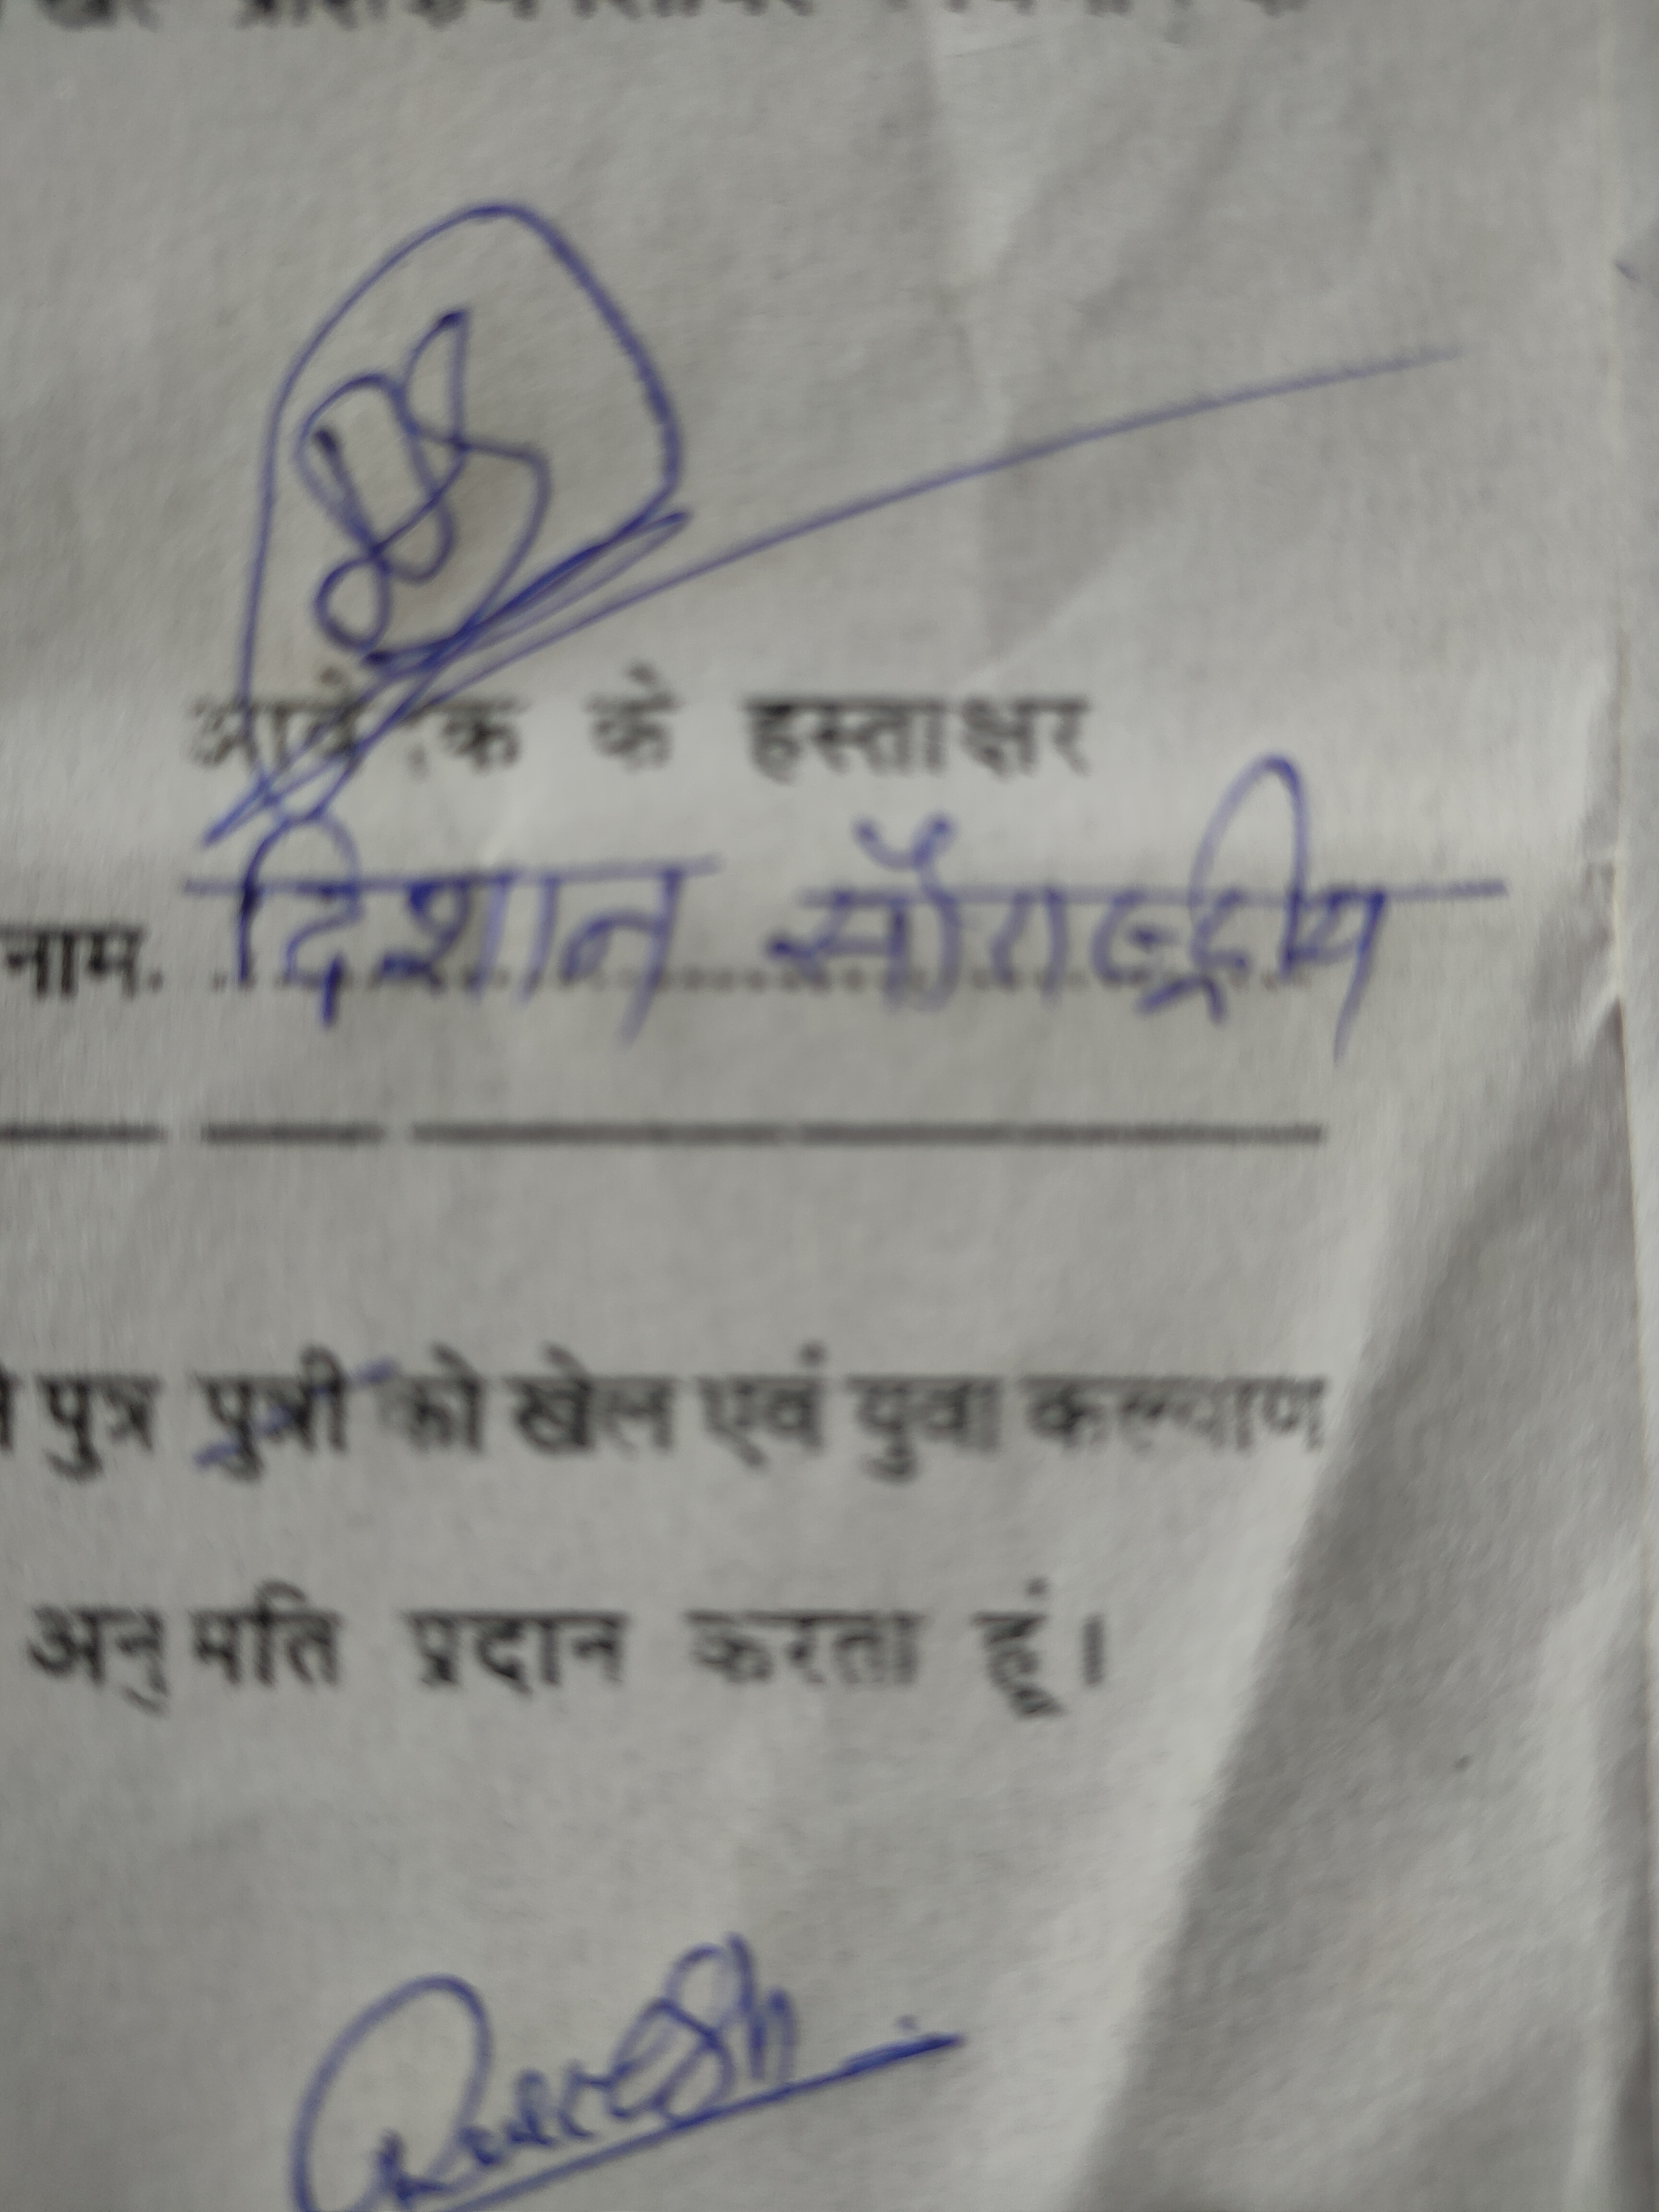 आवेदक के हस्ताक्षर
नाम. दिशान सौराष्ट्रीय
पुत्र पुत्री को खेल एवं युवा कल्याण
अनुमति प्रदान करता हूं।